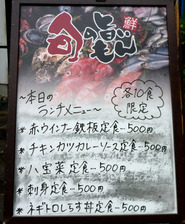 旬の
鮮
各10食
限定
～本日の
ランチメニュー～
＊赤ウインナー鉄板定食…500円
＊チキンカツカレーソース定食…500円
＊八宝菜定食…500円
＊刺身定食…500円
＊ネギトロしらす丼定食…500円